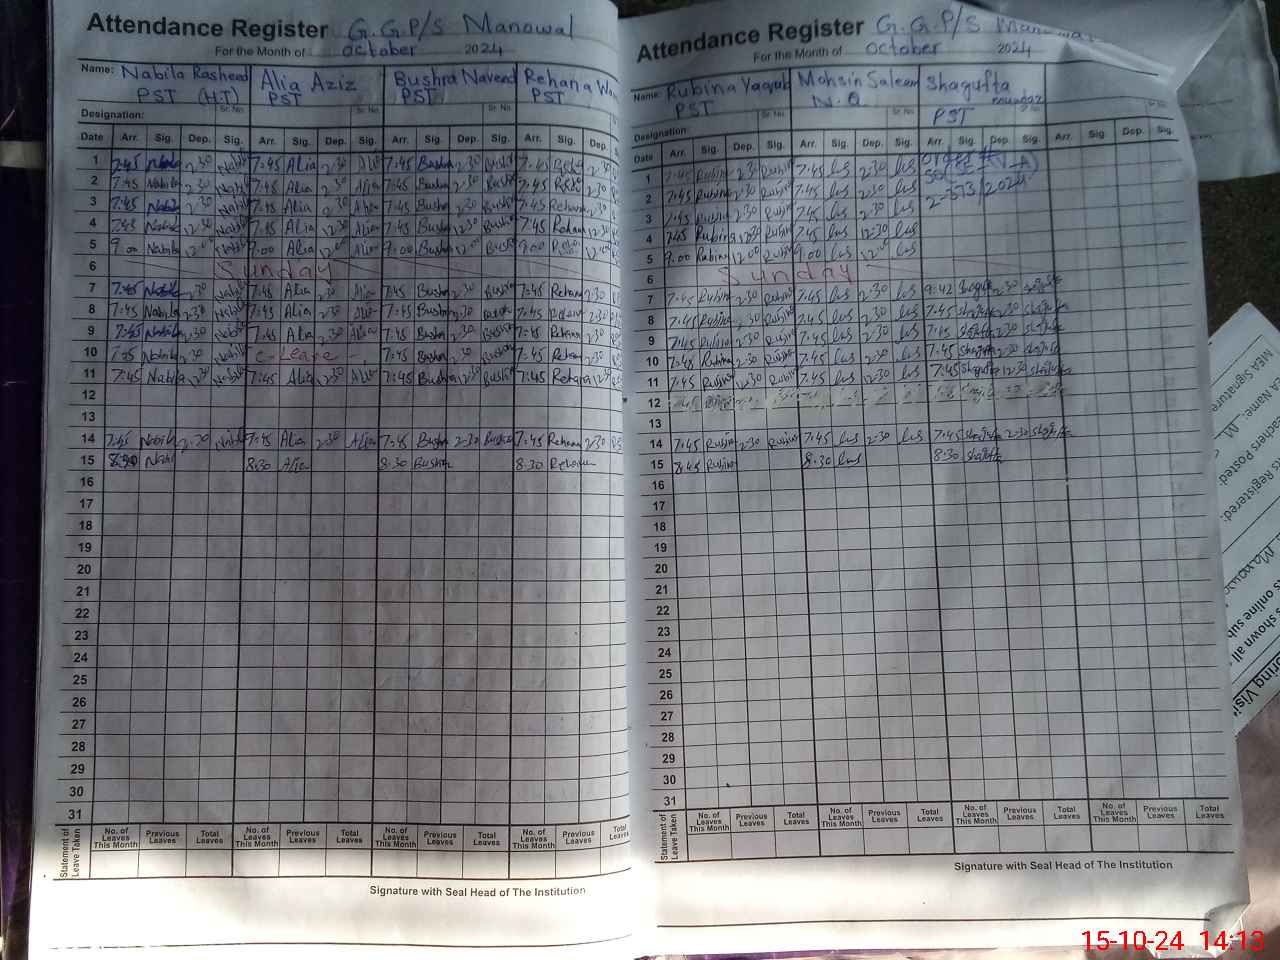 Attendance Register G.G.P/S Manowal
For the Month of October 2024
Name: Nabila Rasheed Alia Aziz Bushra Naveed Rehana
PST (H.T) PST PST PST
Sr. No. Sr. No. Sr. No.
Designation:
Date Arr. Sig. Dep. Sig. Arr. Sig. Dep. Sig. Arr. Sig. Dep. Sig. Arr. Sig. Dep.
1 7:45 Nabila 2:30 Nabila 7:45 Alia 2:30 Alia 7:45 Bushra 2:30 Bushra 7:45 2:30
2 7:45 Nabila 2:30 Nabila 7:45 Alia 2:30 Alia 7:45 Bushra 2:30 Bushra 7:45 2:30
3 7:45 Nabila 2:30 Nabila 7:45 Alia 2:30 Alia 7:45 Bushra 2:30 Bushra 7:45 Rehana 2:30
4 7:45 Nabila 12:30 Nabila 7:45 Alia 12:30 Alia 7:45 Bushra 12:30 Bushra 7:45 Rehana 12:30
5 9:00 Nabila 12:00 Nabila 9:00 Alia 12:00 Alia 9:00 Bushra 12:00 Bushra 9:00 12:00
6 Sunday
7 7:45 Nabila 2:30 Nabila 7:45 Alia 2:30 Alia 7:45 Bushra 2:30 Bushra 7:45 Rehana 2:30
8 7:45 Nabila 2:30 Nabila 7:45 Alia 2:30 Alia 7:45 Bushra 2:30 Bushra 7:45 Rehana 2:30
9 7:45 Nabila 2:30 Nabila 7:45 Alia 2:30 Alia 7:45 Bushra 2:30 Bushra 7:45 Rehana 2:30
10 7:45 Nabila 2:30 Nabila C- Leave - 7:45 Bushra 2:30 Bushra 7:45 Rehana 2:30
11 7:45 Nabila 12:30 Nabila 7:45 Alia 12:30 Alia 7:45 Bushra 12:30 Bushra 7:45 Rehana 12:30
12
13
14 7:45 Nabila 2:30 Nabila 7:45 Alia 2:30 Alia 7:45 Bushra 2:30 Bushra 7:45 Rehana 2:30
15 8:30 Nabila 8:30 Alia 8:30 Bushra 8:30 Rehana
16
17
18
19
20
21
22
23
24
25
26
27
28
29
30
31
Statement of Leave Taken
No. of Leaves This Month Previous Leaves Total Leaves No. of Leaves This Month Previous Leaves Total Leaves No. of Leaves This Month Previous Leaves Total Leaves No. of Leaves This Month Previous Leaves Total Leaves
Signature with Seal Head of The Institution
Attendance Register G.G.P/S Manowal
For the Month of October 2024
Name: Rubina Yaqub Mohsin Saleem Shagufta
PST N.Q mumtaz
PST
Sr. No. Sr. No. Sr. No. Sr. No.
Designation:
Date Arr. Sig. Dep. Sig. Arr. Sig. Dep. Sig. Arr. Sig. Dep. Sig. Arr. Sig. Dep. Sig.
1 7:45 Rubina 2:30 Rubina 7:45 2:30
2 7:45 Rubina 2:30 Rubina 7:45 2:30
3 7:45 Rubina 2:30 Rubina 7:45 2:30
4 7:45 Rubina 12:30 Rubina 7:45 12:30
5 9:00 Rubina 12:00 Rubina 9:00 12:00
6 Sunday
7 7:45 Rubina 2:30 Rubina 7:45 2:30 9:42 Shagufta 2:30 Shagufta
8 7:45 Rubina 2:30 Rubina 7:45 2:30 7:45 Shagufta 2:30 Shagufta
9 7:45 Rubina 2:30 Rubina 7:45 2:30 7:45 Shagufta 2:30 Shagufta
10 7:45 Rubina 2:30 Rubina 7:45 2:30 7:45 Shagufta 2:30 Shagufta
11 7:45 Rubina 12:30 Rubina 7:45 12:30 7:45 Shagufta 12:30 Shagufta
12
13
14 7:45 Rubina 2:30 Rubina 7:45 2:30 7:45 Shagufta 2:30 Shagufta
15 8:45 Rubina 8:30 8:30 Shagufta
16
17
18
19
20
21
22
23
24
25
26
27
28
29
30
31
Statement of Leave Taken
No. of Leaves This Month Previous Leaves Total Leaves No. of Leaves This Month Previous Leaves Total Leaves No. of Leaves This Month Previous Leaves Total Leaves No. of Leaves This Month Previous Leaves Total Leaves
Signature with Seal Head of The Institution
MEA Signature
Name:
eachers Posted:
s Registered:
15-10-24 14:13